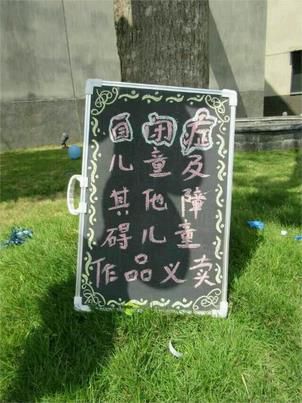 自闭症
儿童及
其他障
碍儿童
作品义卖